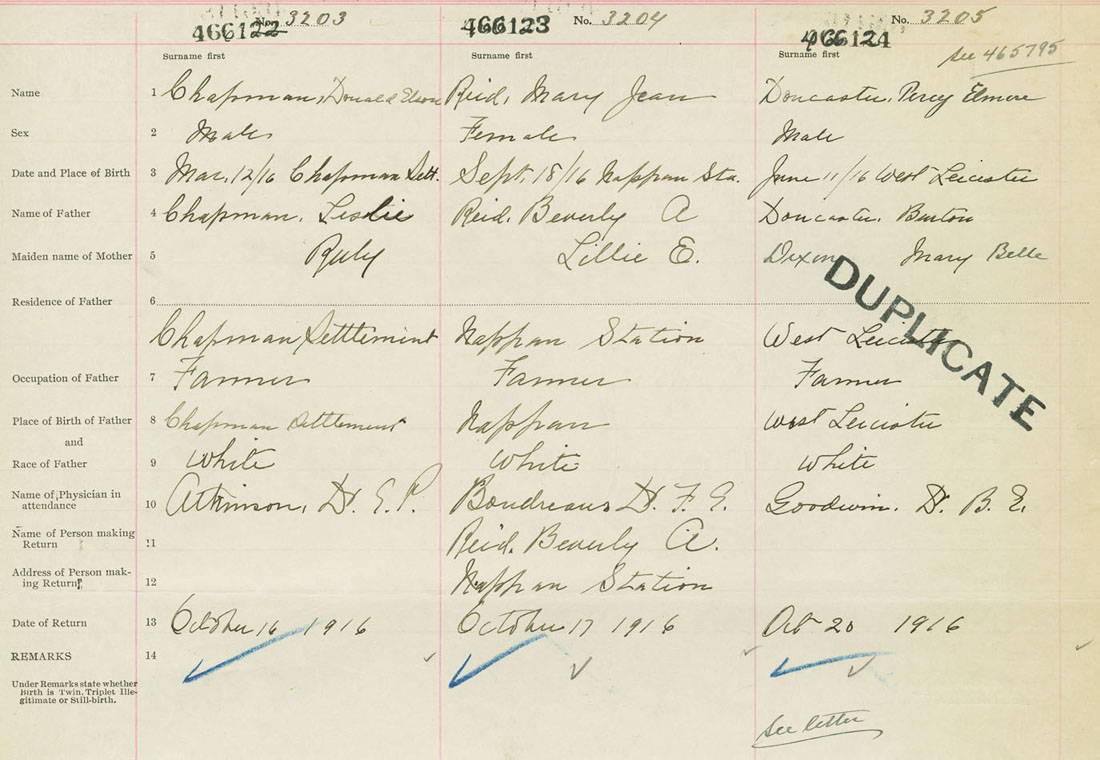 466122 No. 3203 466123 No. 3204 466124 No. 3205
Surname first Surname first Surname first See 465795
Name 1 Chapman, Donald Reid, Mary Jean Doncaster, Percy Elmore
Sex 2 Male Female Male
Date and Place of Birth 3 Mar. 12/16 Chapman Sett. Sept. 18/16 Nappan Sta. June 11/16 West Leicester
Name of Father 4 Chapman, Leslie Reid, Beverly A Doncaster, Burton
Maiden name of Mother 5 Ruby Lillie E. Dixon Mary Belle
Residence of Father 6
DUPLICATE
Chapman Settlement Nappan Station West Leicester
Occupation of Father 7 Farmer Farmer Farmer
Place of Birth of Father 8 Chapman Settlement Nappan West Leicester
and
Race of Father 9 White White White
Name of Physician in
attendance 10 Atkinson, D. E. P. Boudreau D. F. E. Goodwin, D. B. E.
Name of Person making
Return 11 Reid, Beverly A.
Address of Person mak-
ing Return 12 Nappan Station
Date of Return 13 October 16 1916 October 17 1916 Oct 20 1916
REMARKS 14
Under Remarks state whether
Birth is Twin, Triplet Ille-
gitimate or Still-birth.
See letter